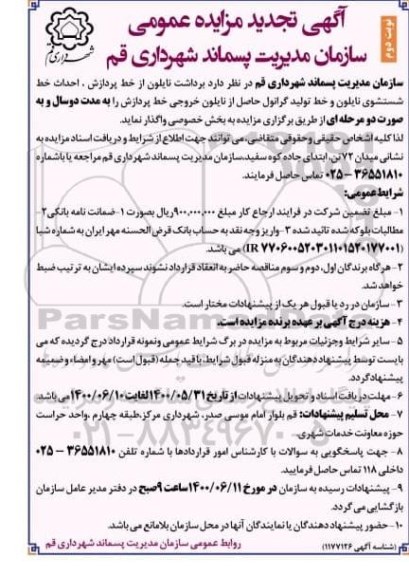 نوبت دوم
آگهی تجدید مزایده عمومی
سازمان مدیریت پسماند شهرداری قم
شهرداری قم
سازمان مدیریت پسماند شهرداری قم در نظر دارد برداشت نایلون از خط پردازش ، احداث خط
شستشوی نایلون و خط تولید گرانول حاصل از نایلون خروجی خط پردازش را به مدت دوسال و به
صورت دو مرحله ای از طریق برگزاری مزایده به بخش خصوصی واگذار نماید.
لذا کلیه اشخاص حقیقی وحقوقی متقاضی، می توانند جهت اطلاع از شرایط و دریافت اسناد مزایده به
نشانی میدان ۷۲ تن، ابتدای جاده کوه سفید،سازمان مدیریت پسماند شهرداری قم مراجعه یا باشماره
۳۶۵۵۱۸۱۰ – ۰۲۵ تماس حاصل فرمایند.
شرایط عمومی:
۱- مبلغ تضمین شرکت در فرایند ارجاع کار مبلغ ۹۰۰,۰۰۰,۰۰۰ریال بصورت ۱- ضمانت نامه بانکی ۲-
مطالبات بلوکه شده تائید شده ۳- واریز وجه نقد به حساب بانک قرض الحسنه مهر ایران به شماره شبا
(IR ۷۷۰۶۰۰۵۲۰۳۰۱۱۰۱۵۲۰۱۷۷۰۰۱) می باشد.
۲- هرگاه برندگان اول، دوم و سوم مناقصه حاضر به انعقاد قرارداد نشوند سپرده ایشان به ترتیب ضبط
خواهد شد.
۳- سازمان در رد یا قبول هر یک از پیشنهادات مختار است.
۴- هزینه درج آگهی بر عهده برنده مزایده است.
۵- سایر شرایط وجزئیات مربوط به مزایده در برگ شرایط عمومی ونمونه قرارداد درج گردیده که می
بایست توسط پیشنهاد دهندگان به منزله قبول شرایط، با قید جمله (قبول است) مهر و امضاء و ضمیمه
پیشنهاد گردد.
۶- مهلت دریافت اسناد و تحویل پیشنهادات از تاریخ ۱۴۰۰/۰۵/۳۱ لغایت ۱۴۰۰/۰۶/۱۰ می باشد.
۷- محل تسلیم پیشنهادات: قم بلوار امام موسی صدر، شهرداری مرکز،طبقه چهارم ،واحد حراست
حوزه معاونت خدمات شهری.
۸- جهت پاسخگویی به سوالات با کارشناس امور قراردادها با شماره تلفن ۳۶۵۵۱۸۱۰ – ۰۲۵
داخلی ۱۱۸ تماس حاصل فرمایید.
۹- پیشنهادات رسیده به سازمان در مورخ ۱۴۰۰/۰۶/۱۱ ساعت ۹صبح در دفتر مدیر عامل سازمان
بازگشایی می گردد.
۱۰- حضور پیشنهاد دهندگان یا نمایندگان آنها در محل سازمان بلامانع می باشد.
روابط عمومی سازمان مدیریت پسماند شهرداری قم
(شناسه آگهی ۱۱۷۷۱۲۶)
ParsNamadData
۰۲۱-۸۸۳۴۹۶۷۰-۵